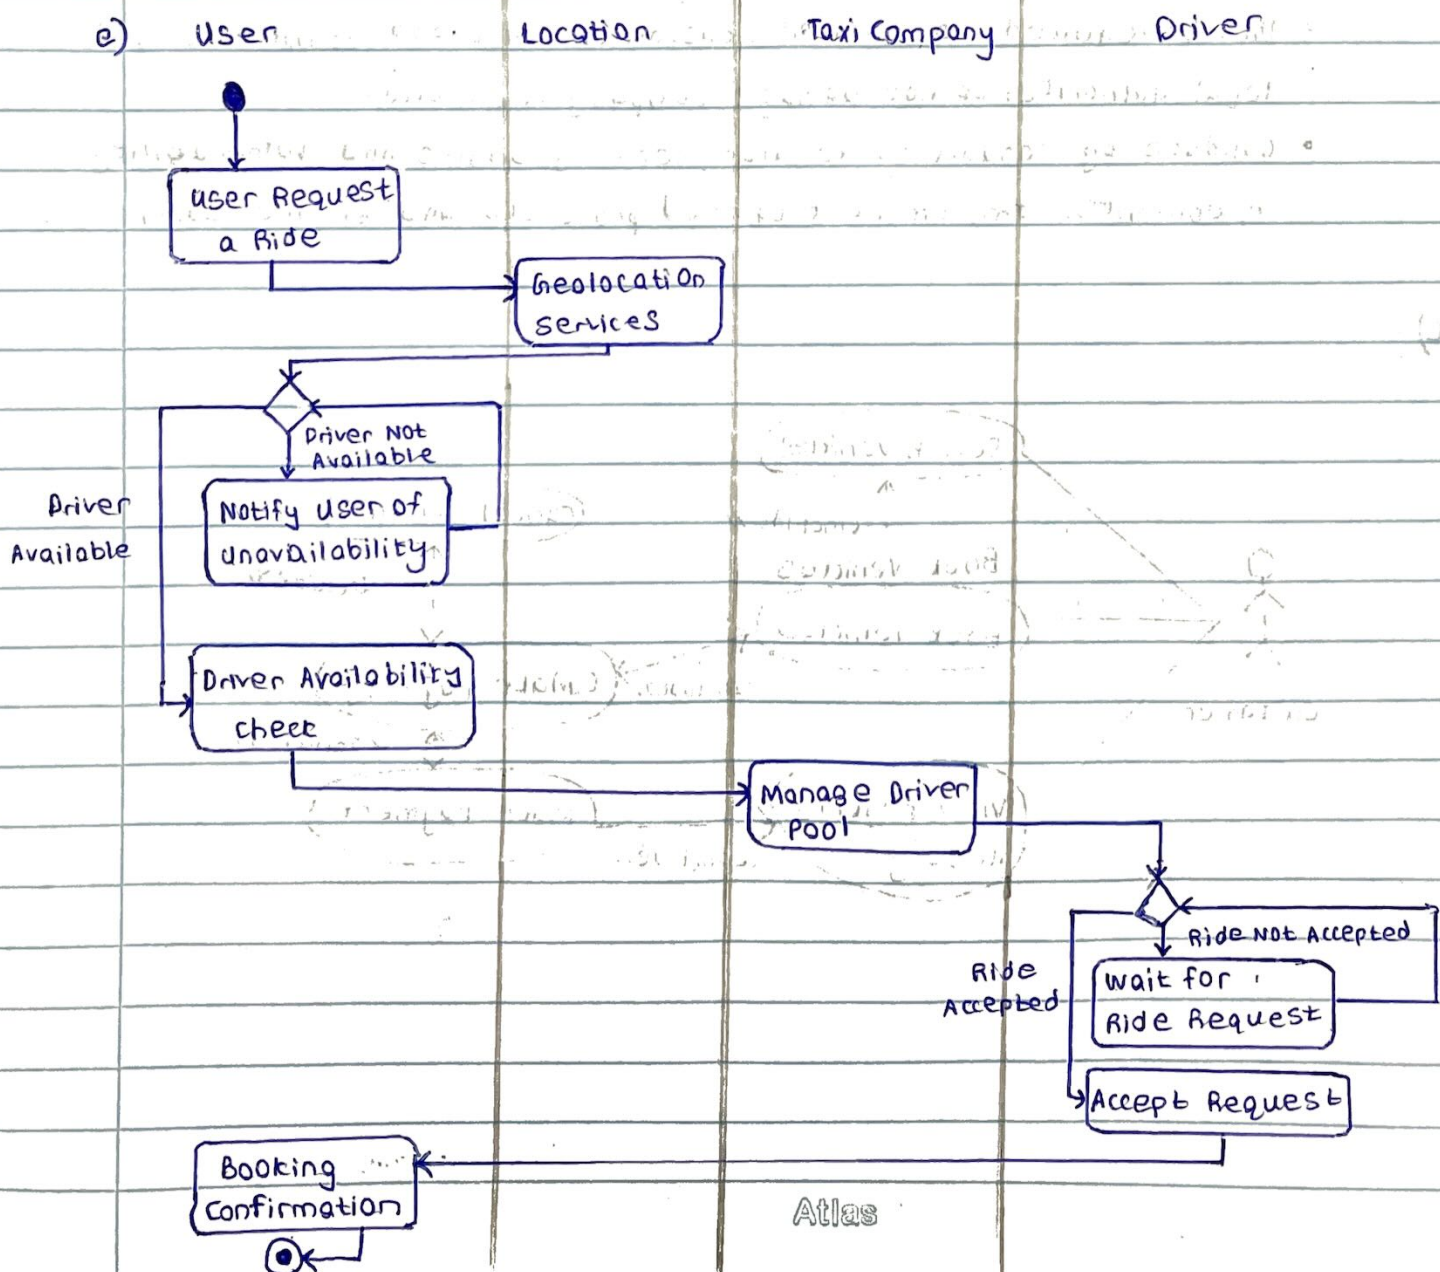 e) User Location Taxi Company Driver
User Request
a Ride
Geolocation
Services
Driver Not
Available
Notify user of
unavailability
Driver
Available
Driver Availability
check
Manage Driver
Pool
Ride Not Accepted
Ride
Accepted
Wait for
Ride Request
Accept Request
Booking
Confirmation
Atlas